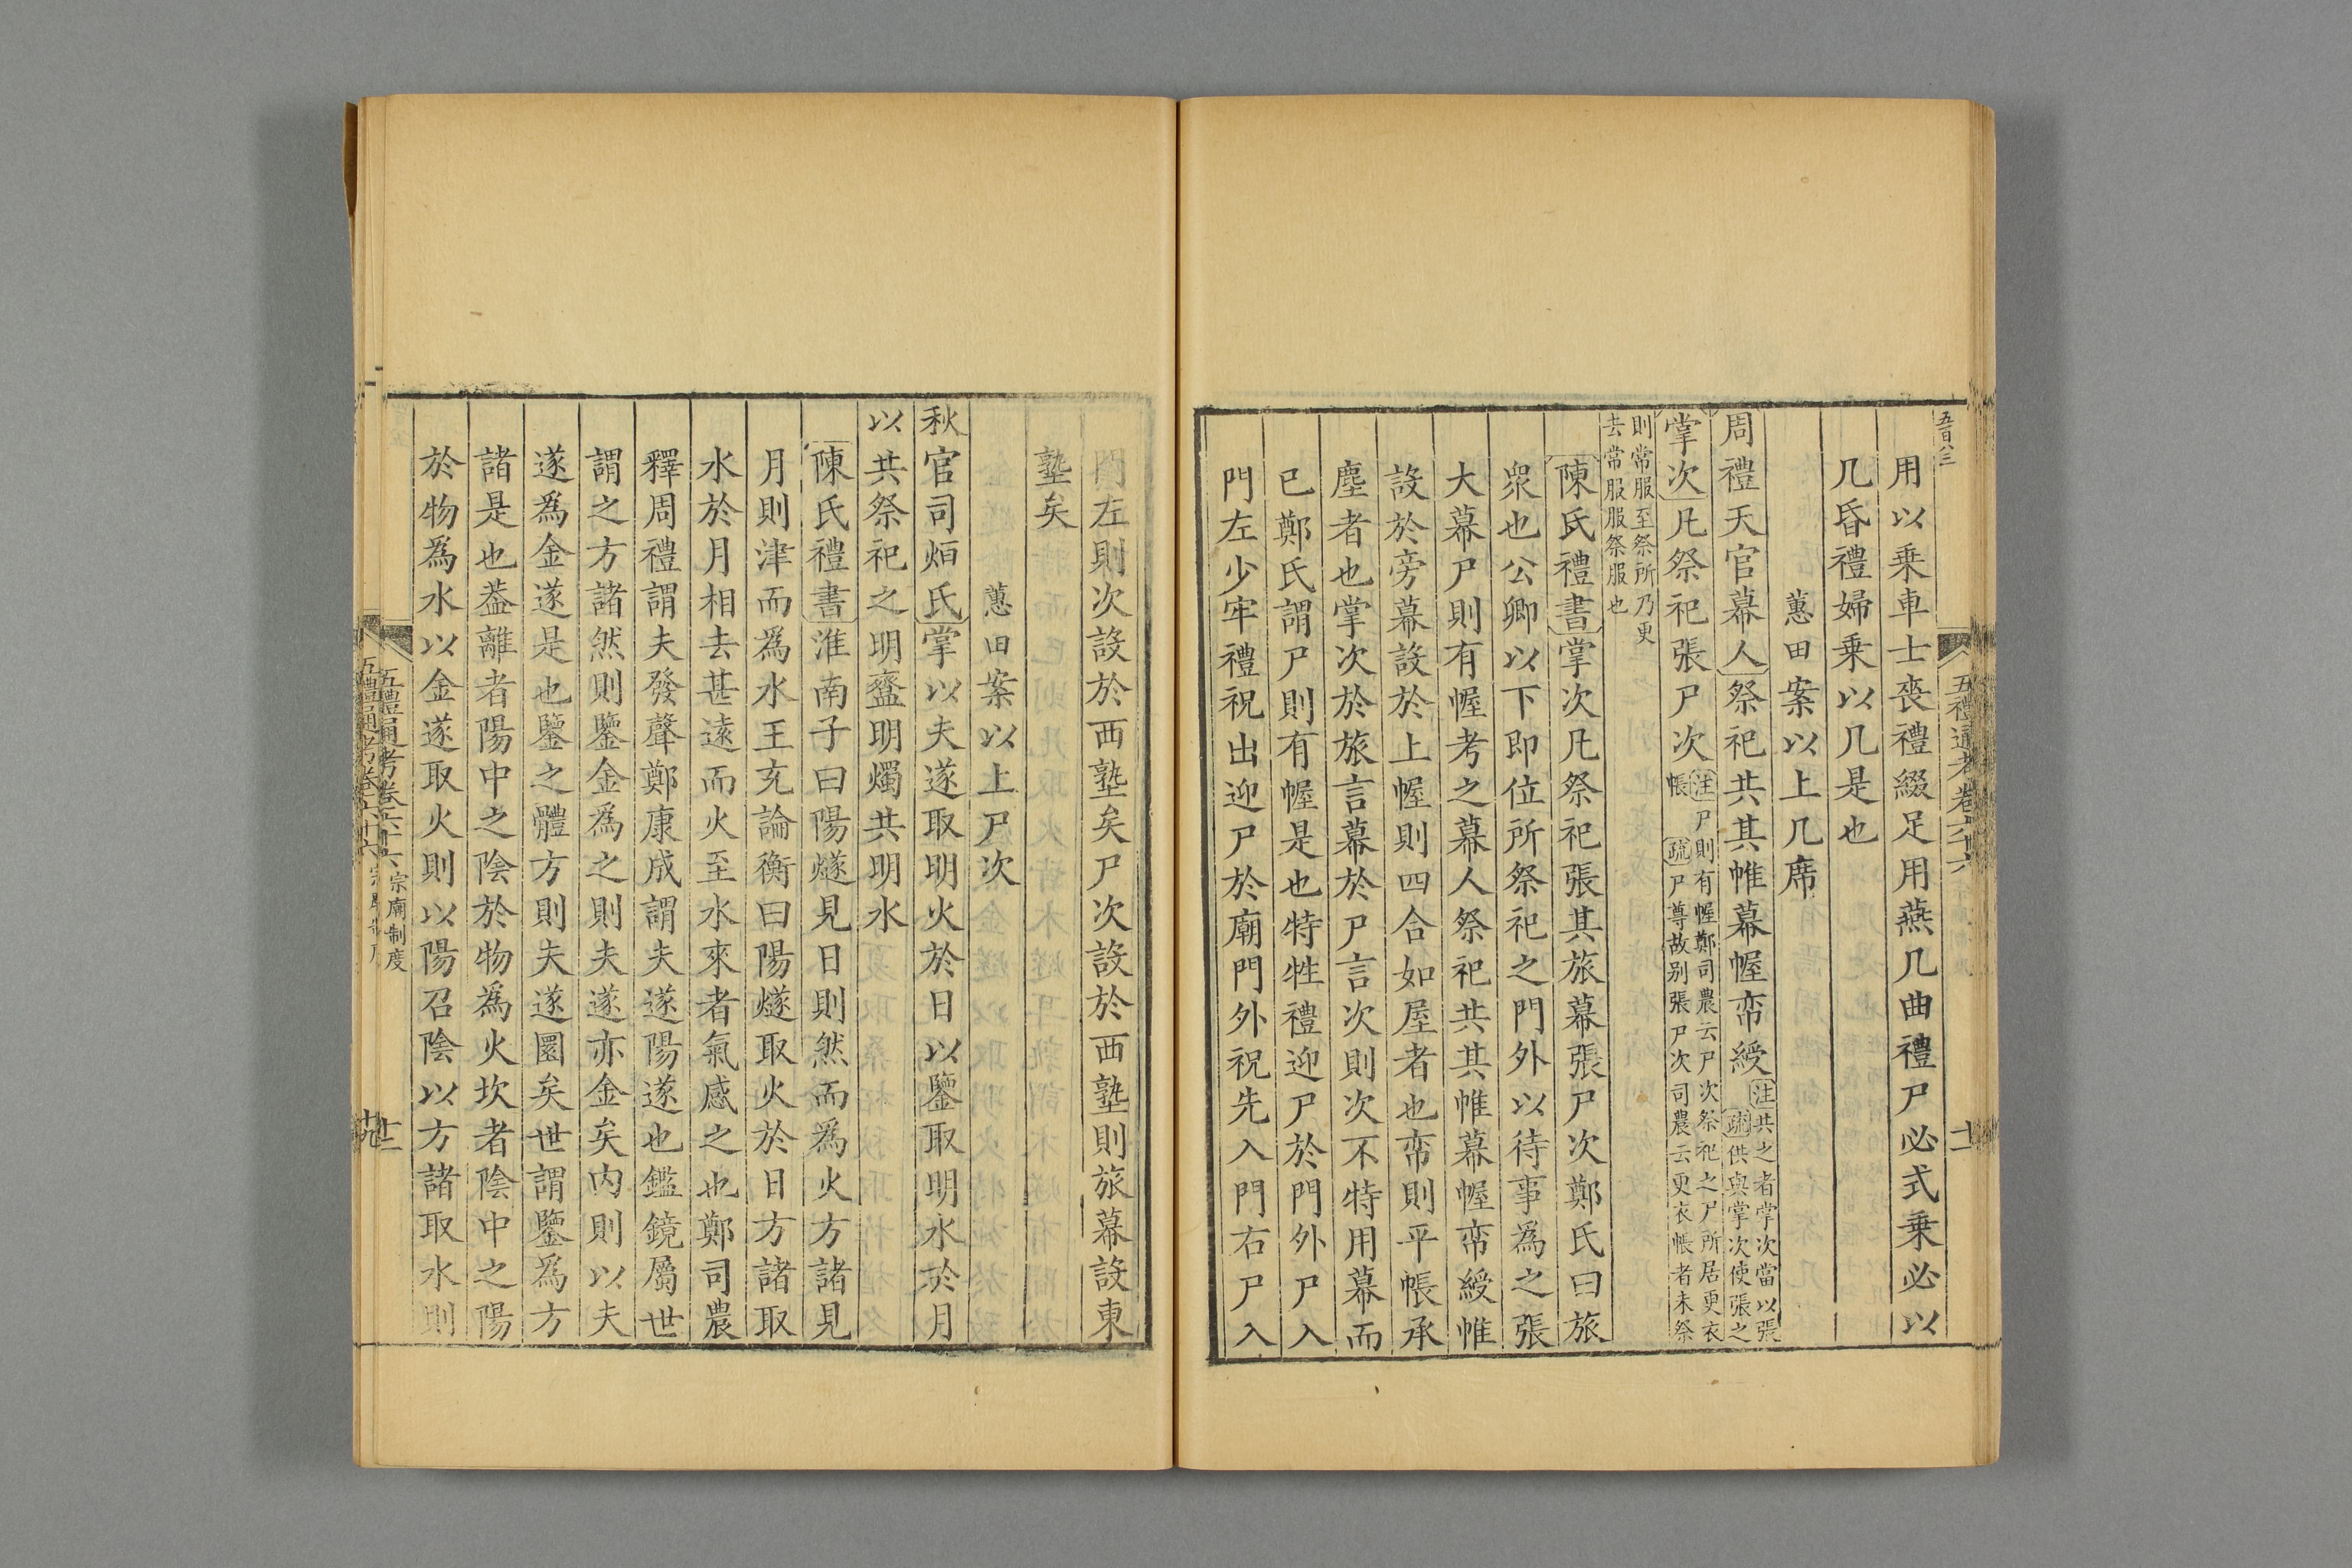 五百八三
五禮通考卷六十六
十二
用以乗車士喪禮綴足用燕几曲禮尸必式乗必以
几昏禮婦乗以几是也
蕙田案以上几席
周禮天官幕人祭祀共其帷幕幄帟綬注共之者掌次當以張
疏供與掌次使張之
掌次凡祭祀張尸次注尸則有幄鄭司農云尸次祭祀之尸所居更衣
帳疏尸尊故别張尸次司農云更衣帳者未祭
則常服至祭所乃更
去常服服祭服也
陳氏禮書掌次凡祭祀張其旅幕張尸次鄭氏曰旅
衆也公卿以下即位所祭祀之門外以待事爲之張
大幕尸則有幄考之幕人祭祀共其帷幕幄帟綬帷
設於旁幕設於上幄則四合如屋者也帟則平帳承
塵者也掌次於旅言幕於尸言次則次不特用幕而
已鄭氏謂尸則有幄是也特牲禮迎尸於門外尸入
門左少牢禮祝出迎尸於廟門外祝先入門右尸入
門左則次設於西塾矣尸次設於西塾則旅幕設東
塾矣
蕙田案以上尸次
秋官司烜氏掌以夫遂取明火於日以鑒取明水於月
以共祭祀之明齍明燭共明水
陳氏禮書淮南子曰陽燧見日則然而爲火方諸見
月則津而爲水王充論衡曰陽燧取火於日方諸取
水於月相去甚遠而火至水來者氣感之也鄭司農
釋周禮謂夫發聲鄭康成謂夫遂陽遂也鑑鏡屬世
謂之方諸然則鑒金爲之則夫遂亦金矣内則以夫
遂爲金遂是也鑒之體方則夫遂圜矣世謂鑒爲方
諸是也葢離者陽中之陰於物爲火坎者陰中之陽
於物爲水以金遂取火則以陽召陰以方諸取水則
五禮通考卷六十六 宗廟制度
十二
五禮通考卷六十六